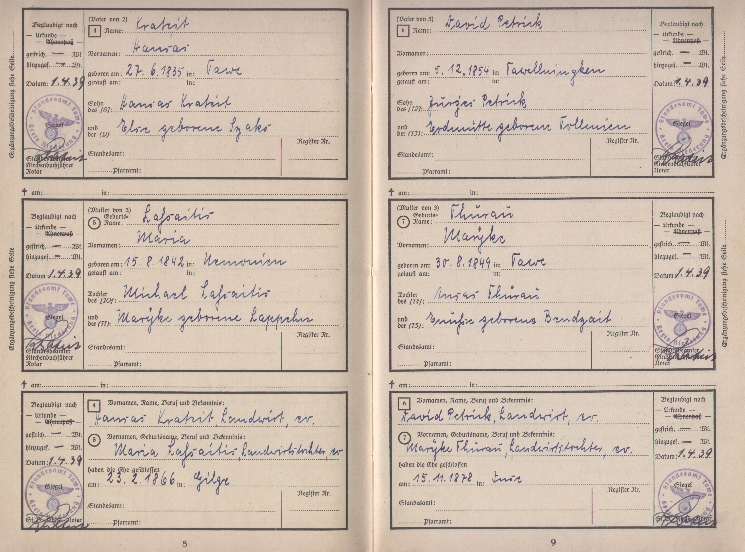 (Vater von 2)
4 Name: Kratzit
Vornamen: Hansas
geboren am: 27. 6. 1835 in: Tawe
getauft am: in:
Sohn des (8): Hansas Kratzit
und der (9): Else geborene
Standesamt: Register Nr.
Pfarramt:
Beglaubigt nach
— Urkunde —
— Ahnenpaß —
gestrich. — Wt.
hinzugef. — Wt.
Datum: 1. 4. 39
Standesamt Tawe
Kreis Niederung
Siegel
Standesbeamter
Kirchenbuchführer
Notar
Ergänzungsbescheinigung siehe Seite
† am: in:
(Mutter von 2)
5 Geburts-Name:
Vorname: Maria
geboren am: 15. 8. 1842 in: Nemonien
getauft am: in:
Tochter des (10): Michael
und der (11): Marike geborene Lappehn
Standesamt: Register Nr.
Pfarramt:
Beglaubigt nach
— Urkunde —
— Ahnenpaß —
gestrich. — Wt.
hinzugef. — Wt.
Datum: 1. 4. 39
Siegel
Standesbeamter
Kirchenbuchführer
Notar
Ergänzungsbescheinigung siehe Seite
† am: in:
4 Vornamen, Name, Beruf und Bekenntnis:
Hansas Kratzit Landwirt, ev.
5 Vornamen, Geburtsname, Beruf und Bekenntnis:
Maria Landwirtstochter ev.
haben die Ehe geschlossen
am: 23. 2. 1866 in: Gilge
Standesamt: Register Nr.
Pfarramt:
Beglaubigt nach
— Urkunde —
— Ahnenpaß —
gestrich. — Wt.
hinzugef. — Wt.
Datum: 1. 4. 39
Siegel
8
(Vater von 3)
6 Name: David Petrick
Vornamen:
geboren am: 5. 12. 1854 in: Tawellningken
getauft am: in:
Sohn des (12): Jurgis Petrick
und der (13): Erdmutte geborene Tollmien
Standesamt: Register Nr.
Pfarramt:
Beglaubigt nach
— Urkunde —
— Ahnenpaß —
gestrich. — Wt.
hinzugef. — Wt.
Datum: 1. 4. 39
Siegel
Standesbeamter
Kirchenbuchführer
Notar
Ergänzungsbescheinigung siehe Seite
† am: in:
(Mutter von 3)
7 Geburts-Name: Thurau
Vornamen: Marike
geboren am: 30. 8. 1849 in: Tawe
getauft am: in:
Tochter des (14): Ansas Thurau
und der (15): geborene Bendzait
Standesamt: Register Nr.
Pfarramt:
Beglaubigt nach
— Urkunde —
— Ahnenpaß —
gestrich. — Wt.
hinzugef. — Wt.
Datum: 1. 4. 39
Siegel
Standesbeamter
Kirchenbuchführer
Notar
Ergänzungsbescheinigung siehe Seite
† am: in:
6 Vornamen, Name, Beruf und Bekenntnis:
David Petrick, Landwirt, ev.
7 Vornamen, Geburtsname, Beruf und Bekenntnis:
Marike Thurau, Landwirtstochter, ev.
haben die Ehe geschlossen
am: 15. 11. 1878 in: Inse
Standesamt: Register Nr.
Pfarramt:
Beglaubigt nach
— Urkunde —
— Ahnenpaß —
gestrich. — Wt.
hinzugef. — Wt.
Datum: 1. 4. 39
Siegel
9